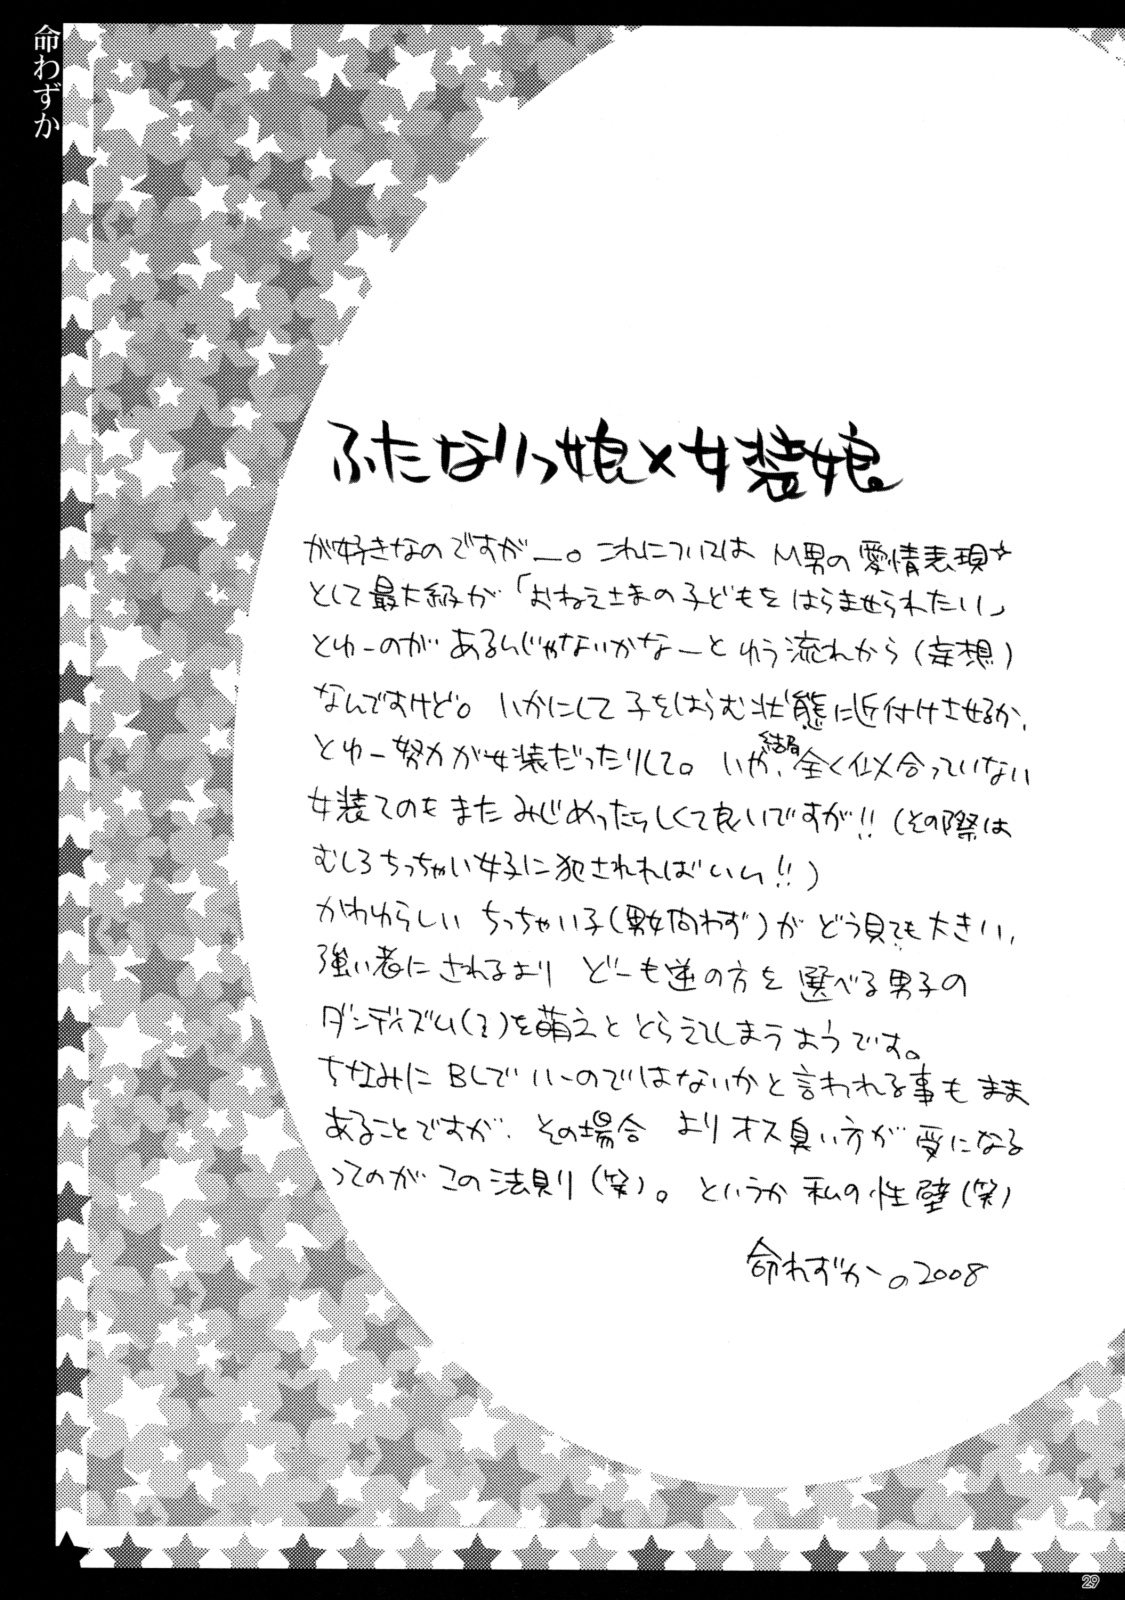 命わずか
ふたなりっ娘×女装娘
が好きなのですがー。これについては M男の愛情表現☆
として最大級が「おねえさまの子どもをはらませられたい」
とゆーのがあるんじゃないかなーとゆう流れから(妄想)
なんですけど。いかにして子をはらむ状態に近付けさせるか、
とゆー努力が女装だったりして。いや、結局全く似合っていない
女装てのもまたみじめったらしくて良いですが!!(その際は
むしろちっちゃい女子に犯されればいい!!)
かわゆらしい ちっちゃい子(男女問わず)が どう見ても大きい、
強い者にされるより どーも逆の方を選べる男子の
ダンディズム(?)を萌えととらえてしまうようです。
ちなみにBLでいーのではないかと言われる事もまま
あることですが、その場合 よりオス臭い方が受になる
ってのがこの法則り(笑)。というか私の性壁(笑)
命わずかの2008
29